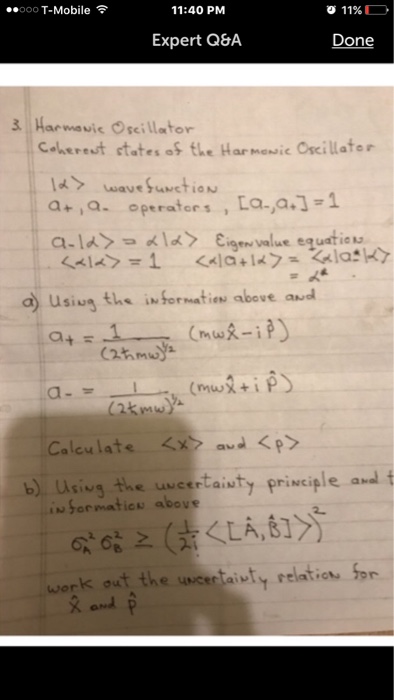 T-Mobile 11:40 PM 11%
Expert Q&A Done
3. Harmonic Oscillator
Coherent states of the Harmonic Oscillator
|α> wavefunction
a+, a- operators, [a-,a+]=1
a-|α> = α|α> Eigenvalue equation
<α|α> = 1 <α|a+|α> = <α|a-*|α>
= α*
a) Using the information above and
a+ = 1/(2ℏmω)^½ (mωx̂-ip̂)
a- = 1/(2ℏmω)^½ (mωx̂+ip̂)
Calculate <x> and <p>
b) Using the uncertainty principle and t
information above
σA² σB² ≥ (1/2i <[Â,B̂]>)²
work out the uncertainty relation for
x̂ and p̂